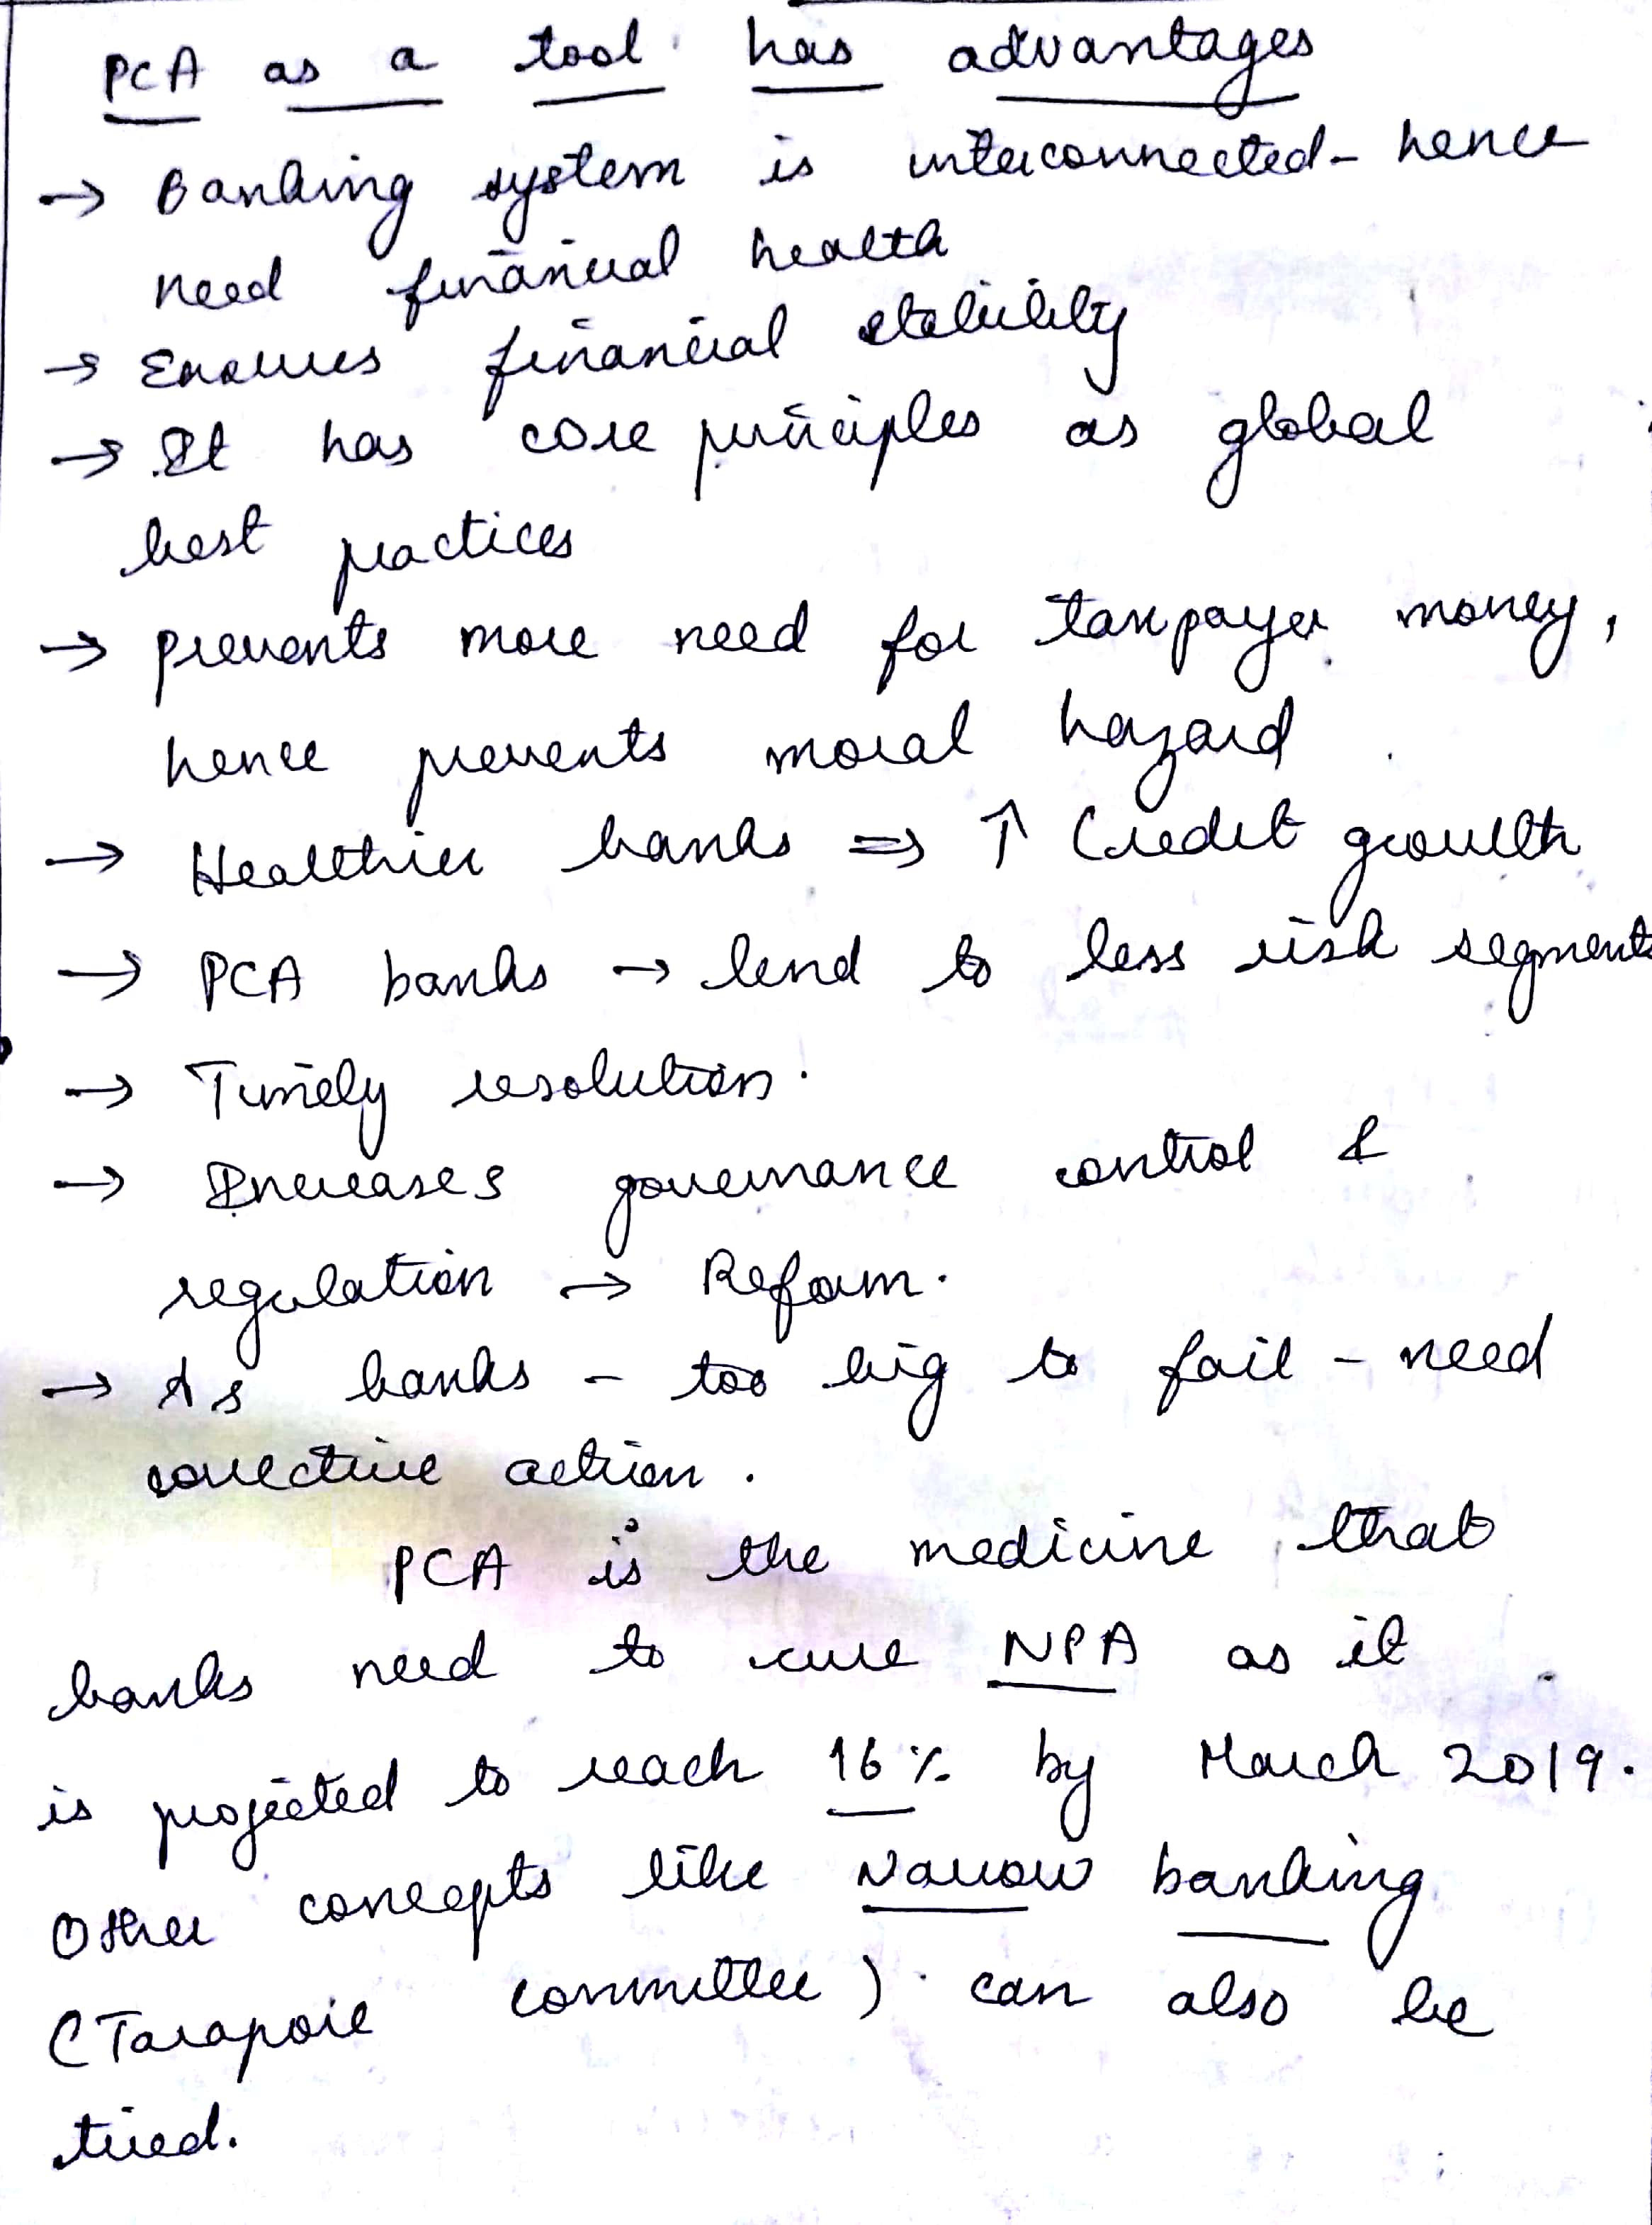 PCA as a tool has advantages
→ Banking system is interconnected - hence
need financial health
→ Ensures financial stability
→ It has core principles as global
best practices
→ prevents more need for taxpayer money,
hence prevents moral hazard
→ Healthier banks ⇒ ↑ Credit growth
→ PCA banks → lend to less risk segments
→ Timely resolution.
→ Increases governance control &
regulation → Reform.
→ As banks - too big to fail - need
corrective action.
PCA is the medicine that
banks need to cure NPA as it
is projected to reach 16% by March 2019.
Other concepts like Narrow banking
(Tarapore committee) can also be
tried.